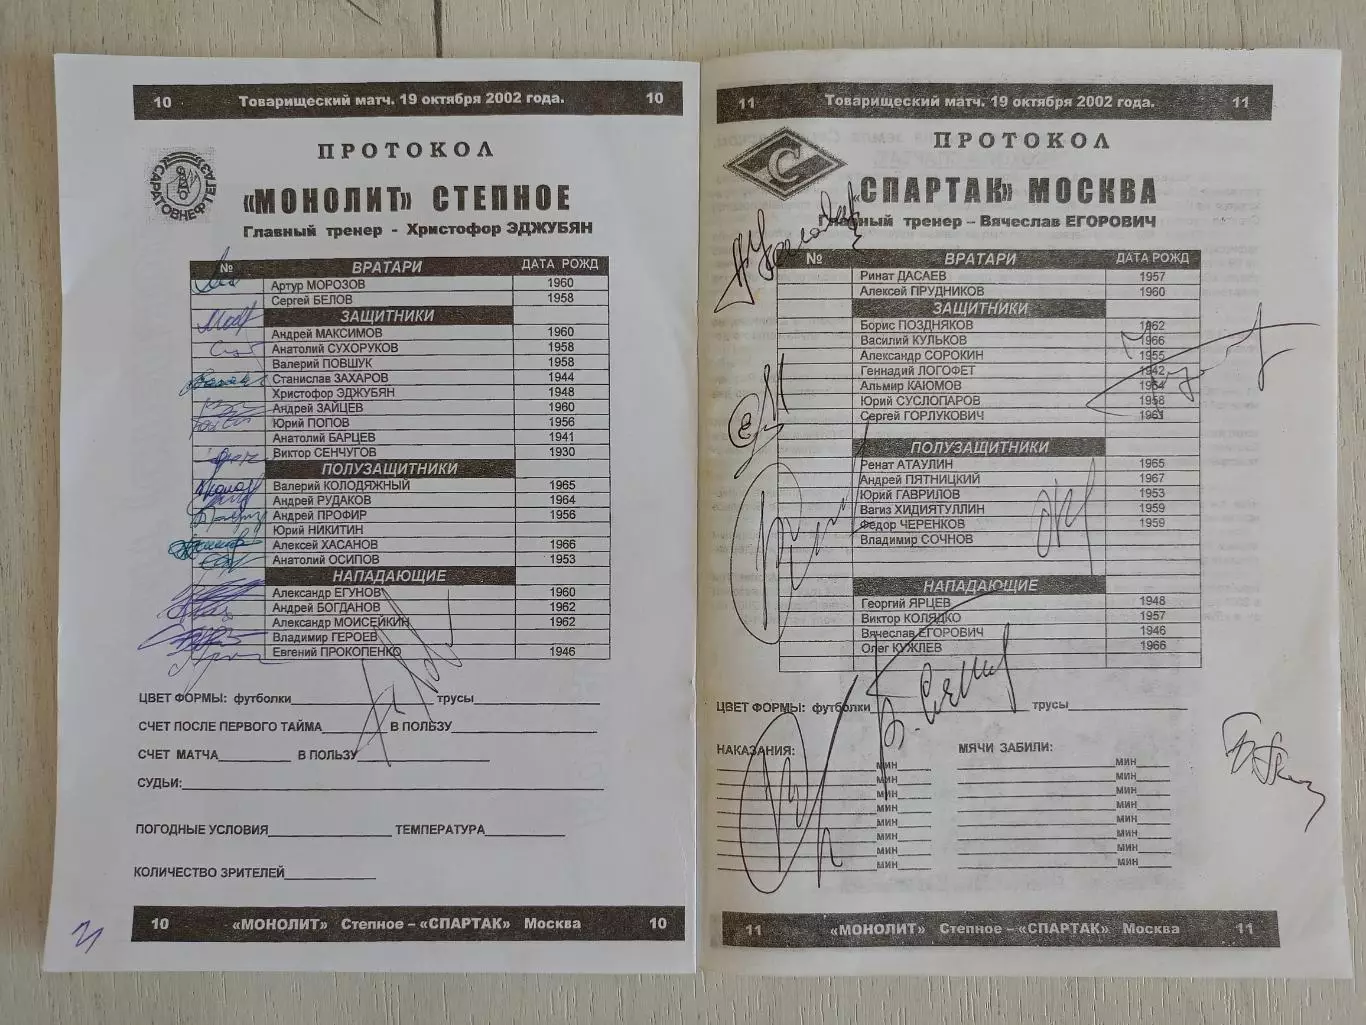 10 Товарищеский матч. 19 октября 2002 года. 10
ПРОТОКОЛ
САРАТОВНЕФТЕГАЗ
«МОНОЛИТ» СТЕПНОЕ
Главный тренер - Христофор ЭДЖУБЯН
№ ВРАТАРИ ДАТА РОЖД
Артур МОРОЗОВ 1960
Сергей БЕЛОВ 1958
ЗАЩИТНИКИ
Андрей МАКСИМОВ 1960
Анатолий СУХОРУКОВ 1958
Валерий ПОВШУК 1958
Станислав ЗАХАРОВ 1944
Христофор ЭДЖУБЯН 1948
Андрей ЗАЙЦЕВ 1960
Юрий ПОПОВ 1956
Анатолий БАРЦЕВ 1941
Виктор СЕНЧУГОВ 1930
ПОЛУЗАЩИТНИКИ
Валерий КОЛОДЯЖНЫЙ 1965
Андрей РУДАКОВ 1964
Андрей ПРОФИР 1956
Юрий НИКИТИН
Алексей ХАСАНОВ 1966
Анатолий ОСИПОВ 1953
НАПАДАЮЩИЕ
Александр ЕГУНОВ 1960
Андрей БОГДАНОВ 1962
Александр МОИСЕЙКИН 1962
Владимир ГЕРОЕВ
Евгений ПРОКОПЕНКО 1946
ЦВЕТ ФОРМЫ: футболки трусы
СЧЕТ ПОСЛЕ ПЕРВОГО ТАЙМА В ПОЛЬЗУ
СЧЕТ МАТЧА В ПОЛЬЗУ
СУДЬИ:
ПОГОДНЫЕ УСЛОВИЯ ТЕМПЕРАТУРА
КОЛИЧЕСТВО ЗРИТЕЛЕЙ
10 «МОНОЛИТ» Степное – «СПАРТАК» Москва 10
11 Товарищеский матч. 19 октября 2002 года. 11
ПРОТОКОЛ
«СПАРТАК» МОСКВА
Главный тренер – Вячеслав ЕГОРОВИЧ
№ ВРАТАРИ ДАТА РОЖД
Ринат ДАСАЕВ 1957
Алексей ПРУДНИКОВ 1960
ЗАЩИТНИКИ
Борис ПОЗДНЯКОВ 1962
Василий КУЛЬКОВ 1966
Александр СОРОКИН 1955
Геннадий ЛОГОФЕТ 1942
Альмир КАЮМОВ 1964
Юрий СУСЛОПАРОВ 1958
Сергей ГОРЛУКОВИЧ 1961
ПОЛУЗАЩИТНИКИ
Ренат АТАУЛИН 1965
Андрей ПЯТНИЦКИЙ 1967
Юрий ГАВРИЛОВ 1953
Вагиз ХИДИЯТУЛЛИН 1959
Федор ЧЕРЕНКОВ 1959
Владимир СОЧНОВ
НАПАДАЮЩИЕ
Георгий ЯРЦЕВ 1948
Виктор КОЛЯДКО 1957
Вячеслав ЕГОРОВИЧ 1946
Олег КУЖЛЕВ 1966
ЦВЕТ ФОРМЫ: футболки трусы
НАКАЗАНИЯ: МЯЧИ ЗАБИЛИ:
мин мин
мин мин
мин мин
мин мин
мин мин
мин мин
мин мин
мин мин
11 «МОНОЛИТ» Степное – «СПАРТАК» Москва 11